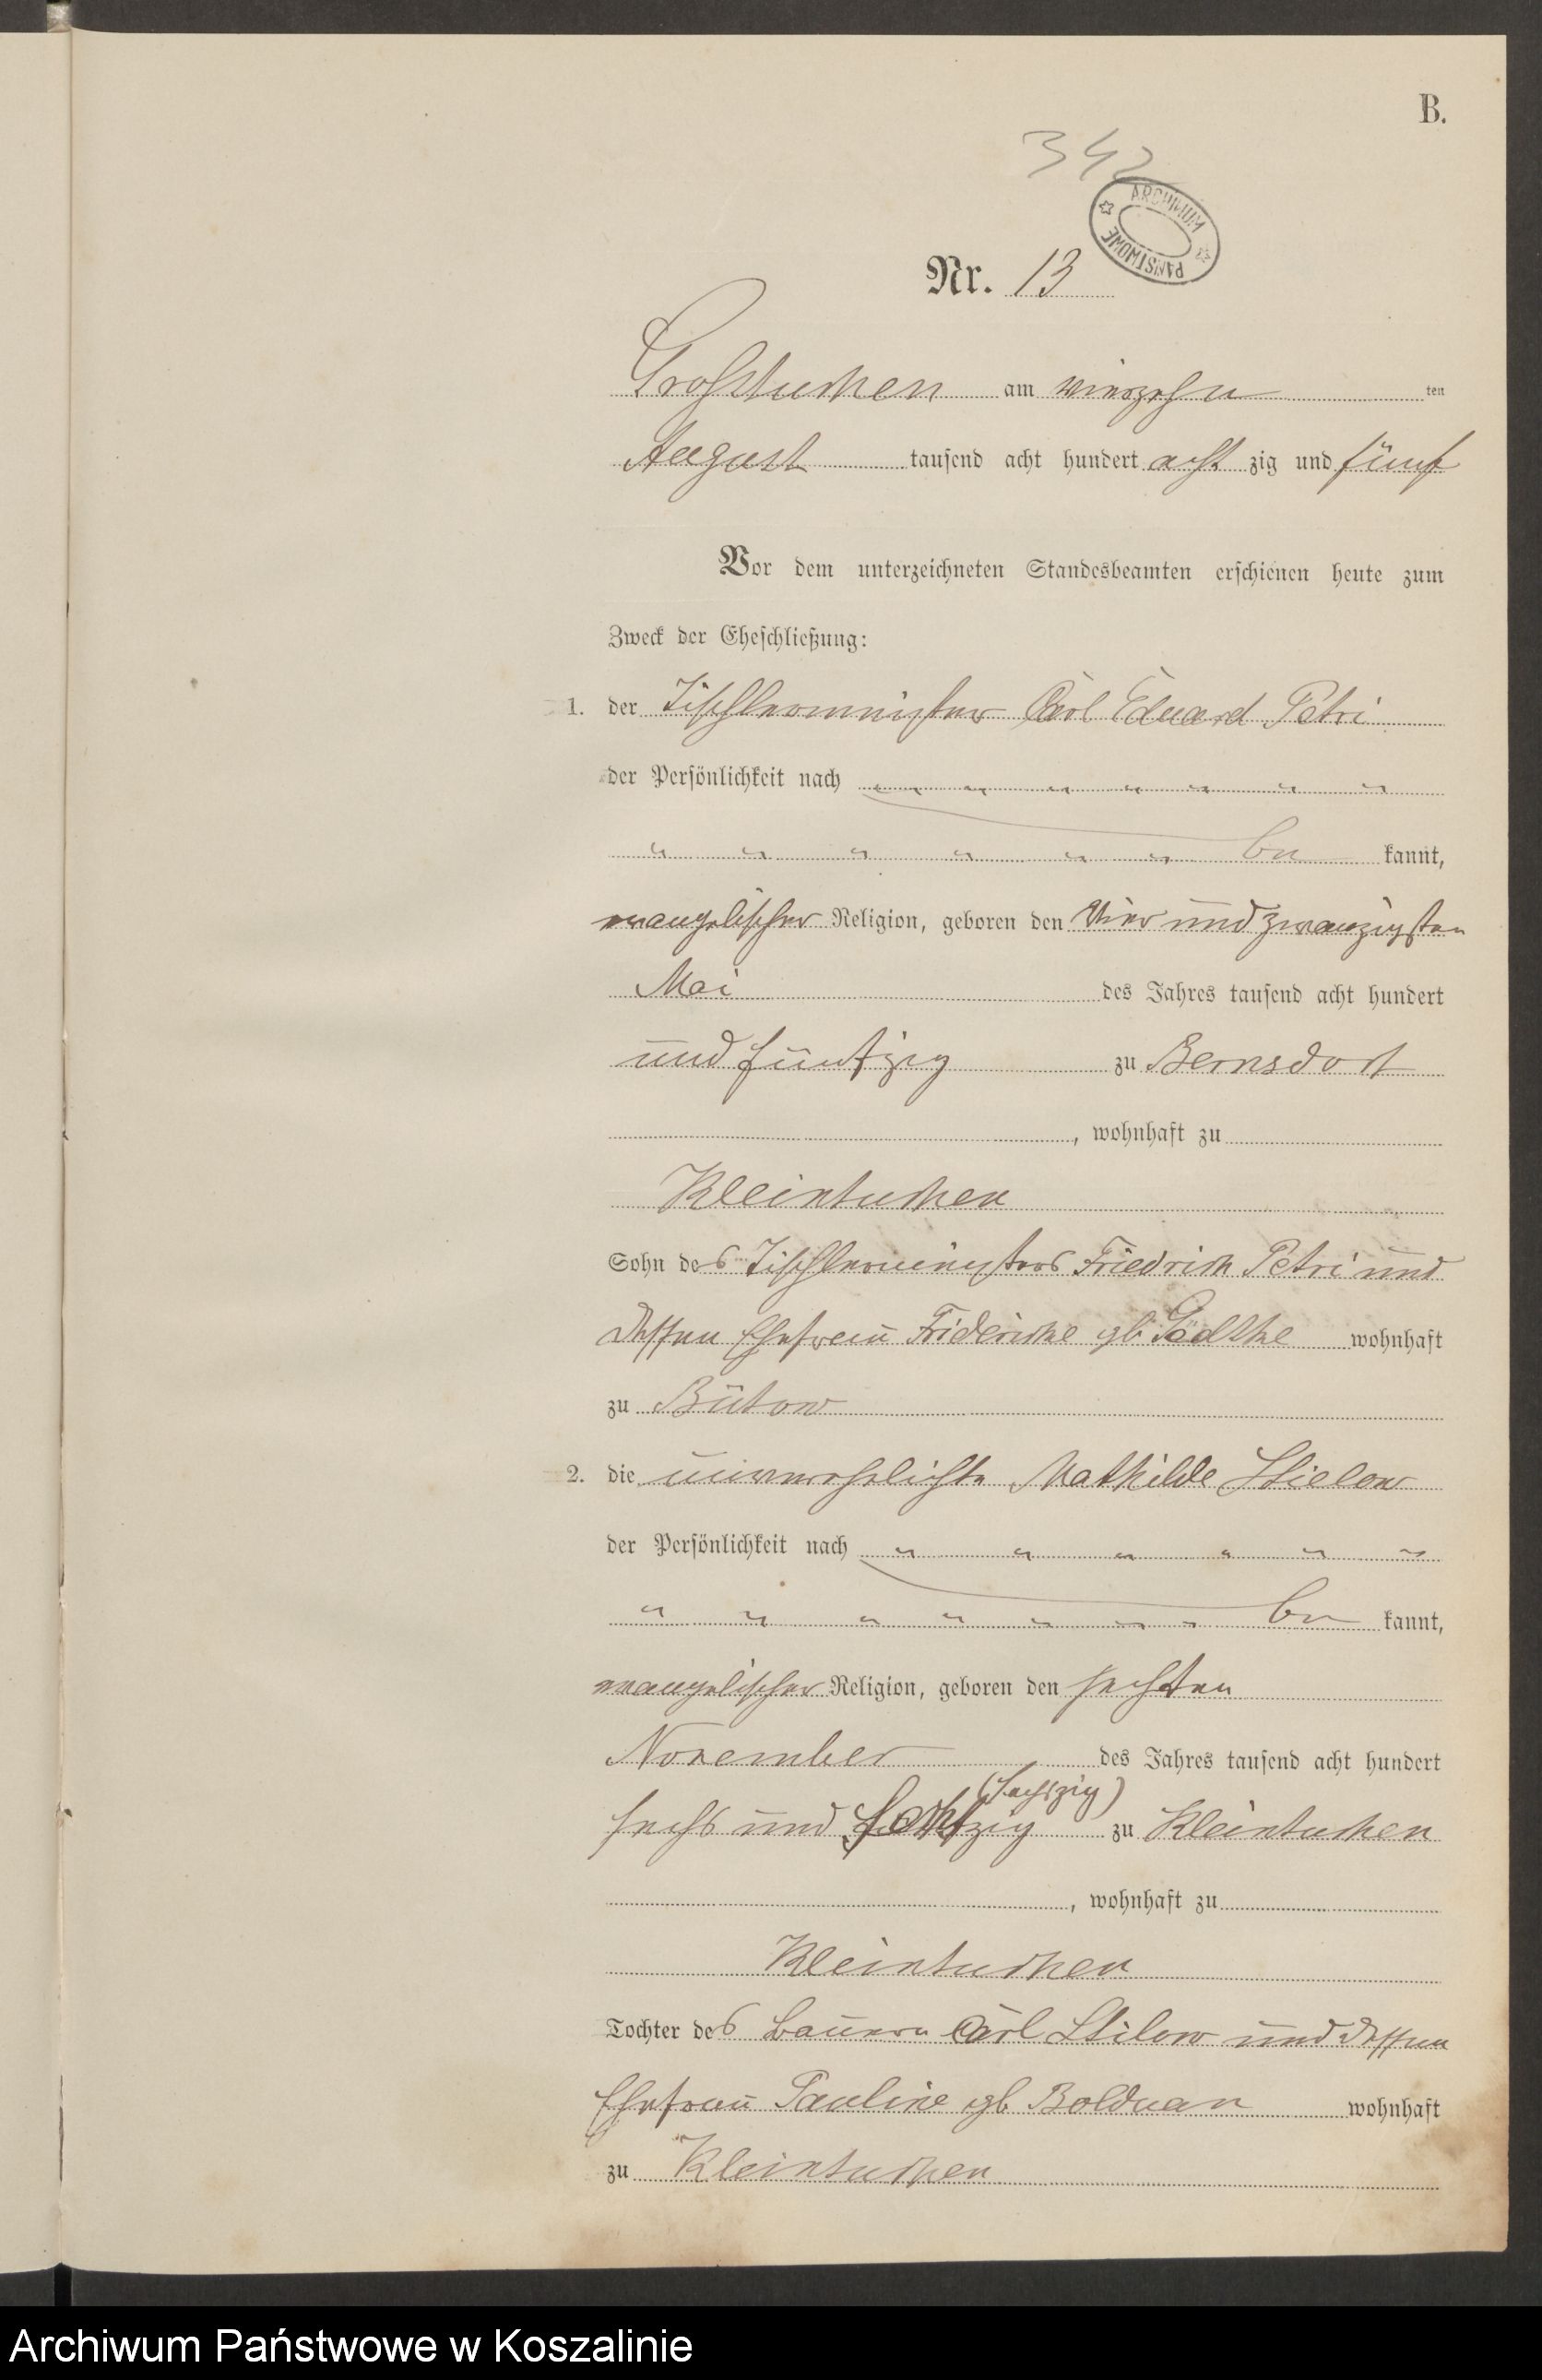 B.
342
ARCHIWUM PAŃSTWOWE
Nr. 13
Großtuchen am vierzehn ten
August tausend acht hundert acht zig und fünf
Vor dem unterzeichneten Standesbeamten erschienen heute zum
Zweck der Eheschließung:
1. der Tischlermeister Carl Eduard Petri
der Persönlichkeit nach " " " " " " " "
" " " " " " be kannt,
evangelischer Religion, geboren den vier und zwanzigsten
Mai des Jahres tausend acht hundert
und fünfzig zu Bernsdorf
, wohnhaft zu
Kleintuchen
Sohn des Tischlermeisters Friedrich Petri und
dessen Ehefrau Fridericke gb Gädtke wohnhaft
zu Bütow
2. die unverehelichte Mathilde Stielow
der Persönlichkeit nach " " " " " "
" " " " " " " be kannt,
evangelischer Religion, geboren den sechsten
November des Jahres tausend acht hundert
(sechszig)
sechs und zig zu Kleintuchen
, wohnhaft zu
Kleintuchen
Tochter des Bauern Carl Stilow und dessen
Ehefrau Pauline gb Bolduan wohnhaft
zu Kleintuchen
Archiwum Państwowe w Koszalinie